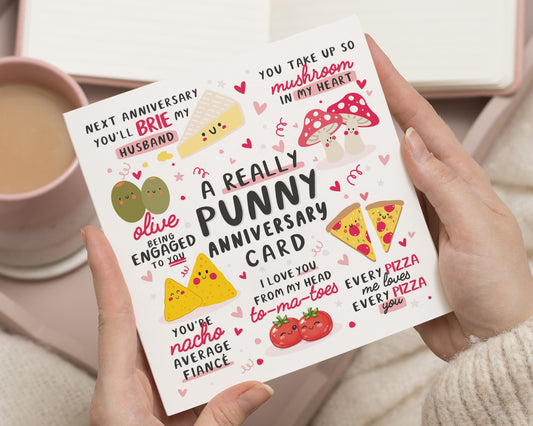 NEXT ANNIVERSARY
YOU'LL BRIE MY
HUSBAND
YOU TAKE UP SO
mushroom
IN MY HEART
A REALLY
PUNNY
ANNIVERSARY
CARD
olive
BEING
ENGAGED
TO YOU
EVERY PIZZA
me loves
EVERY PIZZA
you
I LOVE YOU
FROM MY HEAD
to-ma-toes
YOU'RE
nacho
AVERAGE
FIANCÉ